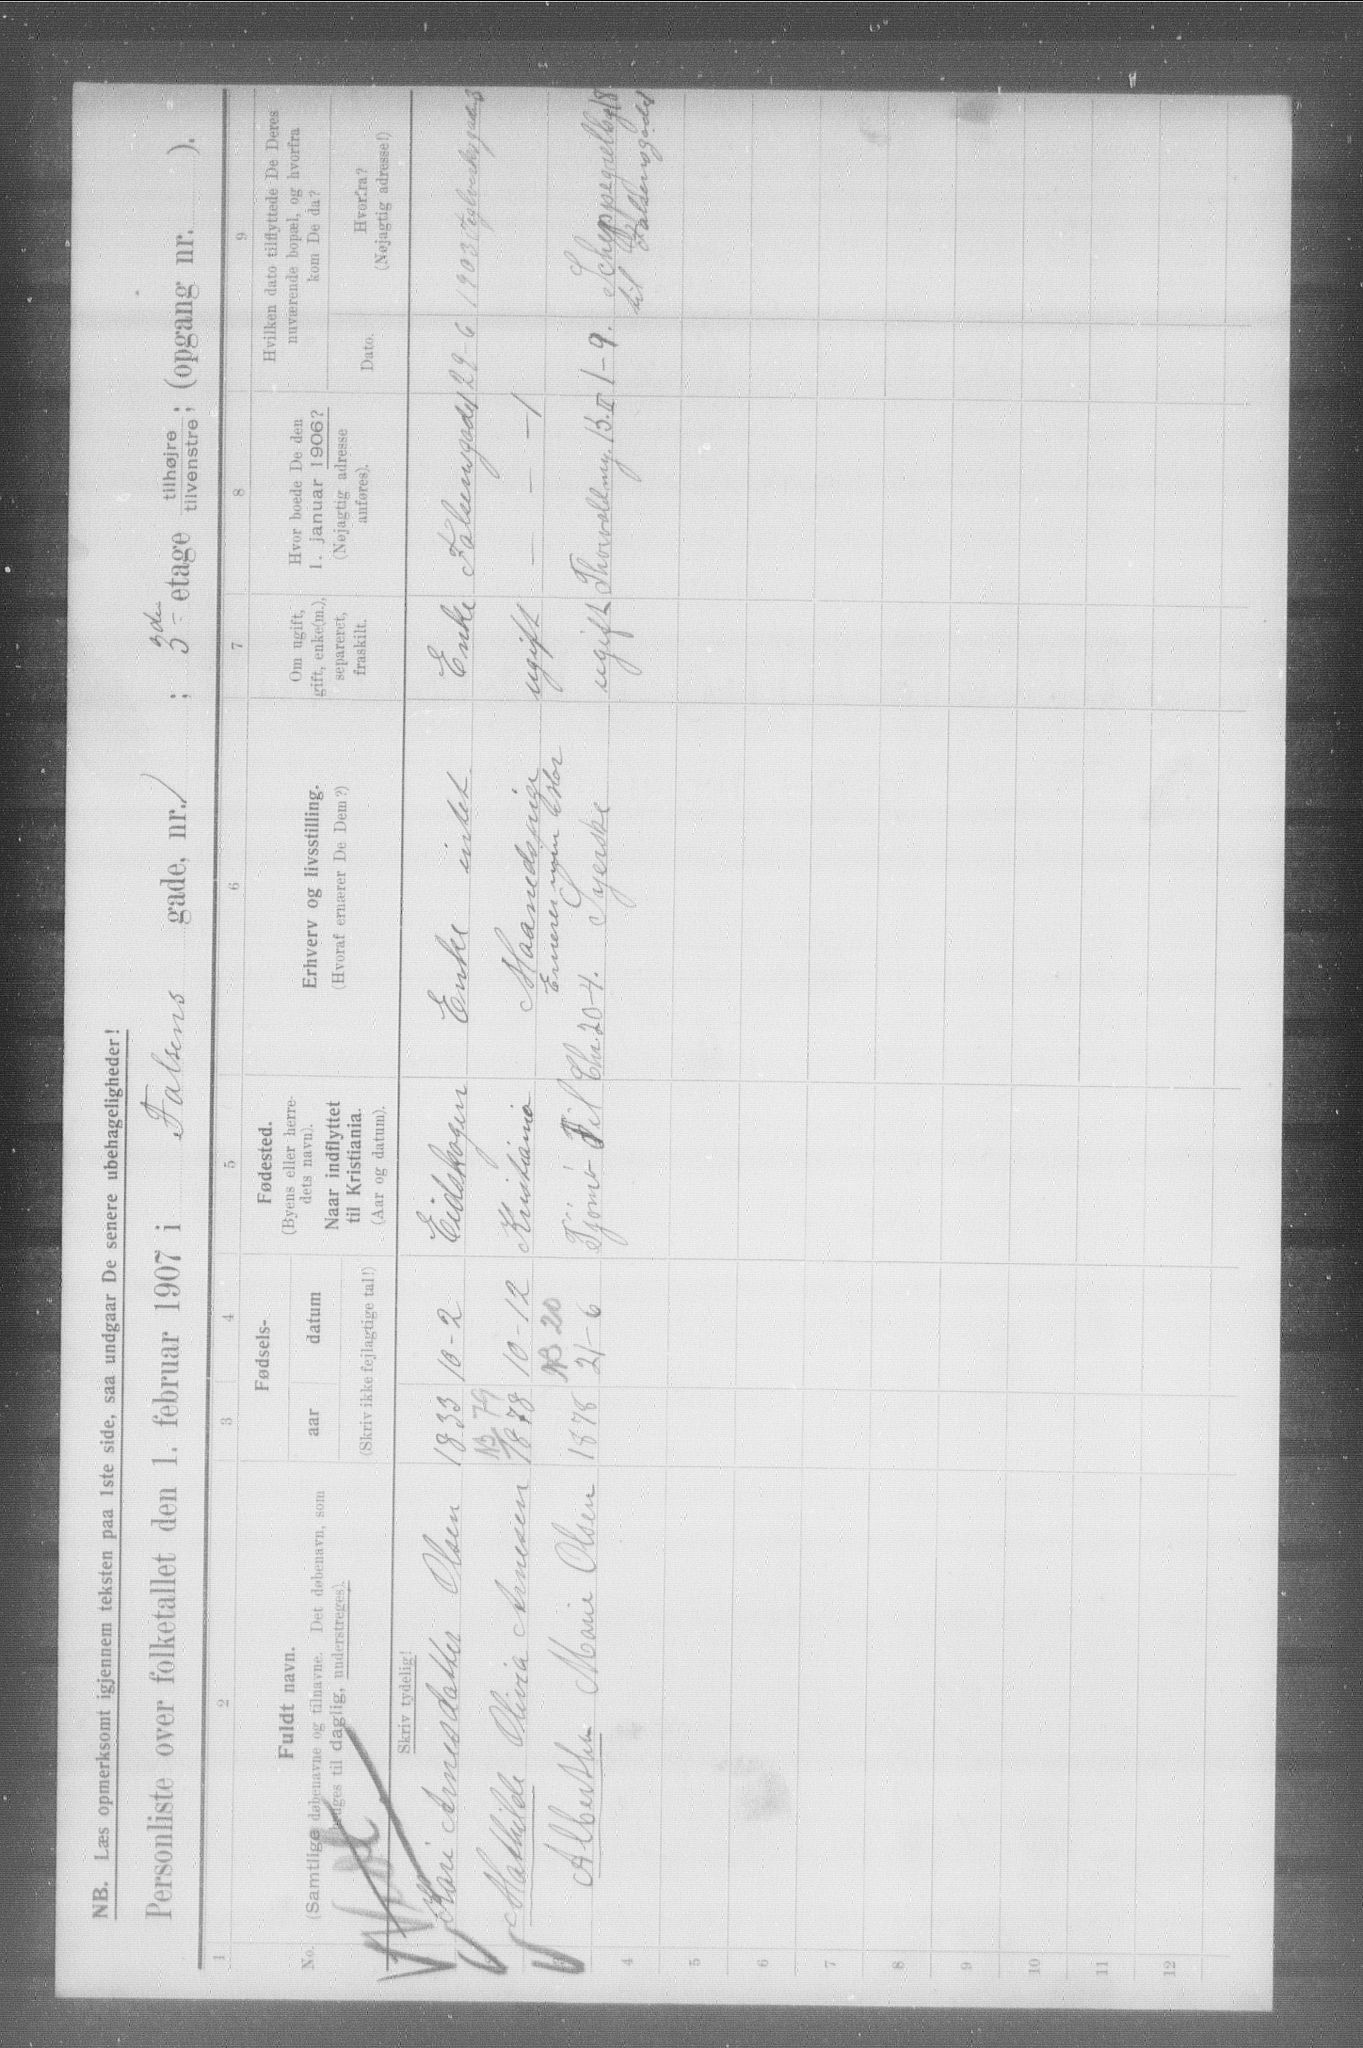 NB. Læs opmerksomt igjennem teksten paa 1ste side, saa undgaar De senere ubehageligheder!
Personliste over folketallet den 1. februar 1907 i Falsens gade, nr. 1 ; 3 3die etage tilhøjre tilvenstre; (opgang nr. ).
1 2 3 4 5 6 7 8 9
No.
Fuldt navn.
(Samtlige døbenavne og tilnavne. Det døbenavn, som
bruges til daglig, understreges).
Fødsels-
aar datum
(Skriv ikke fejlagtige tal!)
Fødested.
(Byens eller herre-
dets navn).
Naar indflyttet
til Kristiania.
(Aar og datum).
Erhverv og livsstilling.
(Hvoraf ernærer De Dem?)
Om ugift,
gift, enke(m.),
separeret,
fraskilt.
Hvor boede De den
1. januar 1906?
(Nøjagtig adresse
anføres).
Hvilken dato tilflyttede De Deres
nuværende bopæl, og hvorfra
kom De da?
Dato.
Hvorfra?
(Nøjagtig adresse!)
Skriv tydelig!
Kari Arnesdatter Olsen 1833 10-2 Eidskogen Enke intet Enke Falsensgade 1 29-6 1903
NB 79
Mathilde Olivia Arnesen 1878 10-12 Kristiania Maanedspige ugift — — — 1
NB 20
Albertine Marie Olsen 1878 21-6 Tjømø Til Chr. 20-4. Syerske ugift Thorvald 13. II 1-9. Scheppegrellsg 18
til Falsensgade 1
4
5
6
7
8
9
10
11
12